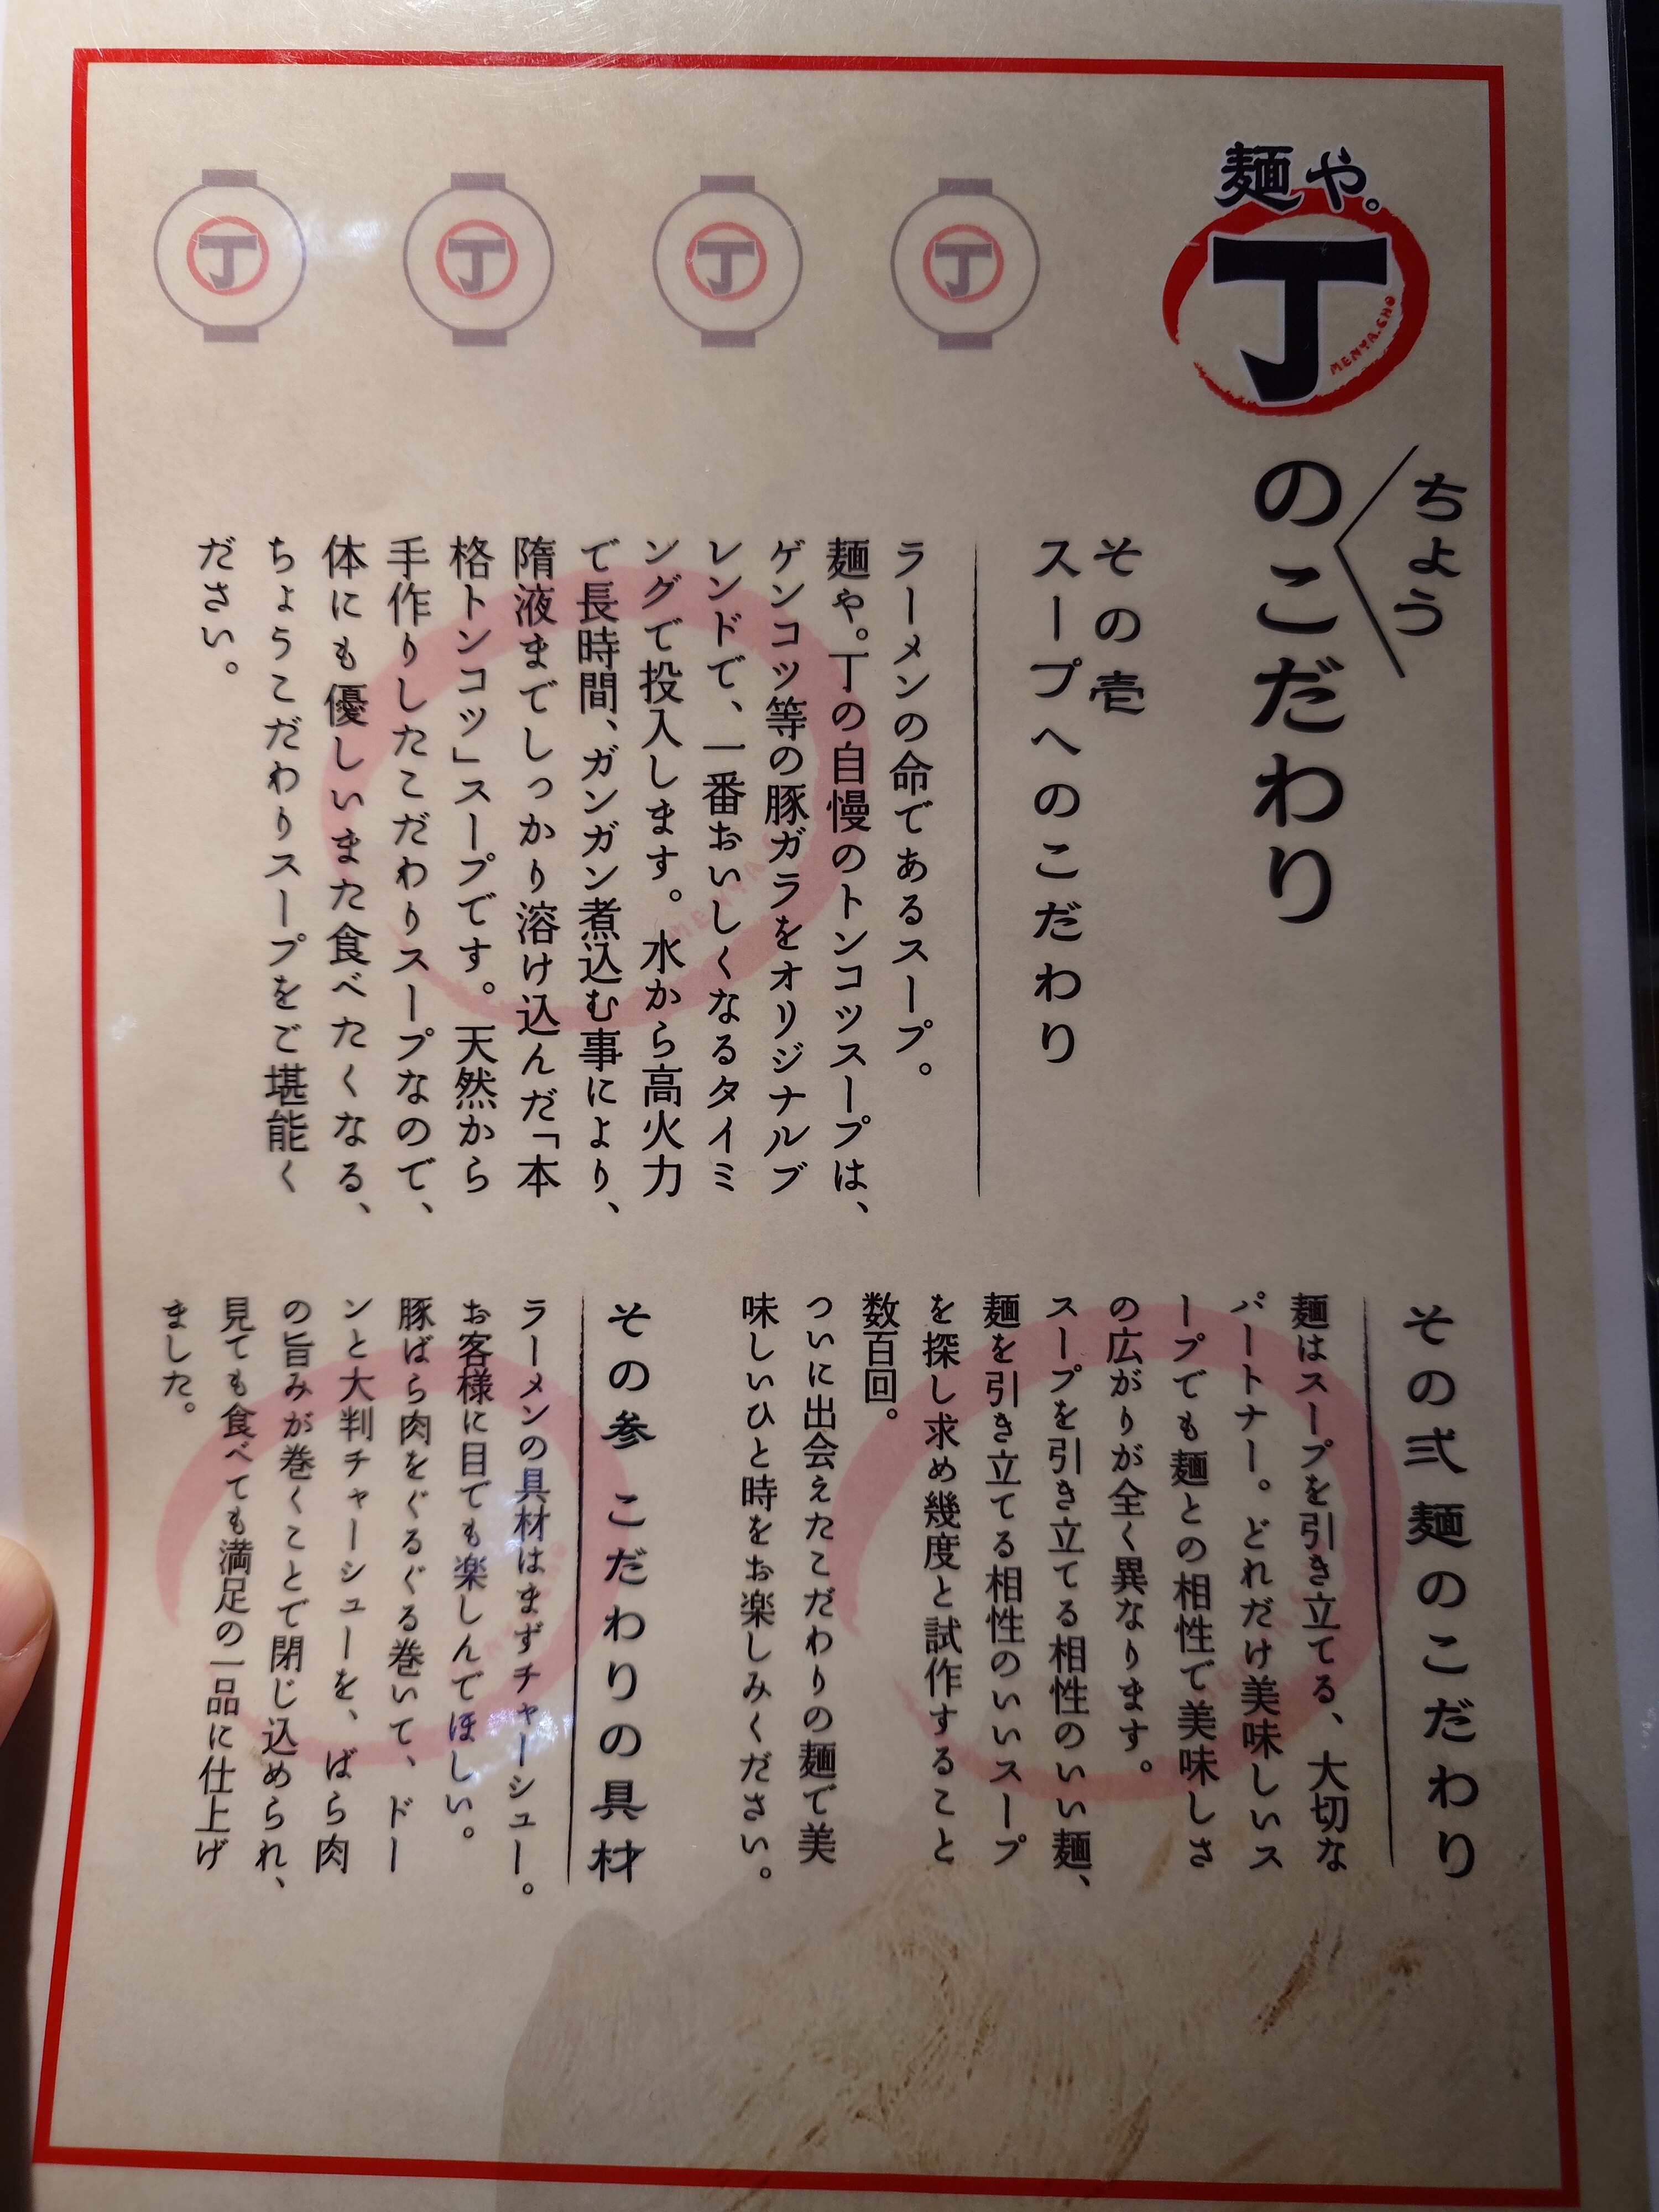 麺や。
丁
MENYA.CHO
ちょう
のこだわり
その壱
スープへのこだわり
ラーメンの命であるスープ。
麺や。丁の自慢のトンコツスープは、
ゲンコツ等の豚ガラをオリジナルブ
レンドで、一番おいしくなるタイミ
ングで投入します。水から高火力
で長時間、ガンガン煮込む事により、
隋液までしっかり溶け込んだ「本
格トンコツ」スープです。天然から
手作りしたこだわりスープなので、
体にも優しいまた食べたくなる、
ちょうこだわりスープをご堪能く
ださい。
その弐 麺のこだわり
麺はスープを引き立てる、大切な
パートナー。どれだけ美味しいス
ープでも麺との相性で美味しさ
の広がりが全く異なります。
スープを引き立てる相性のいい麺、
麺を引き立てる相性のいいスープ
を探し求め幾度と試作すること
数百回。
ついに出会えたこだわりの麺で美
味しいひと時をお楽しみください。
その参 こだわりの具材
ラーメンの具材はまずチャーシュー。
お客様に目でも楽しんでほしい。
豚ばら肉をぐるぐる巻いて、ドー
ンと大判チャーシューを、ばら肉
の旨みが巻くことで閉じ込められ、
見ても食べても満足の一品に仕上げ
ました。
丁
丁
丁
丁